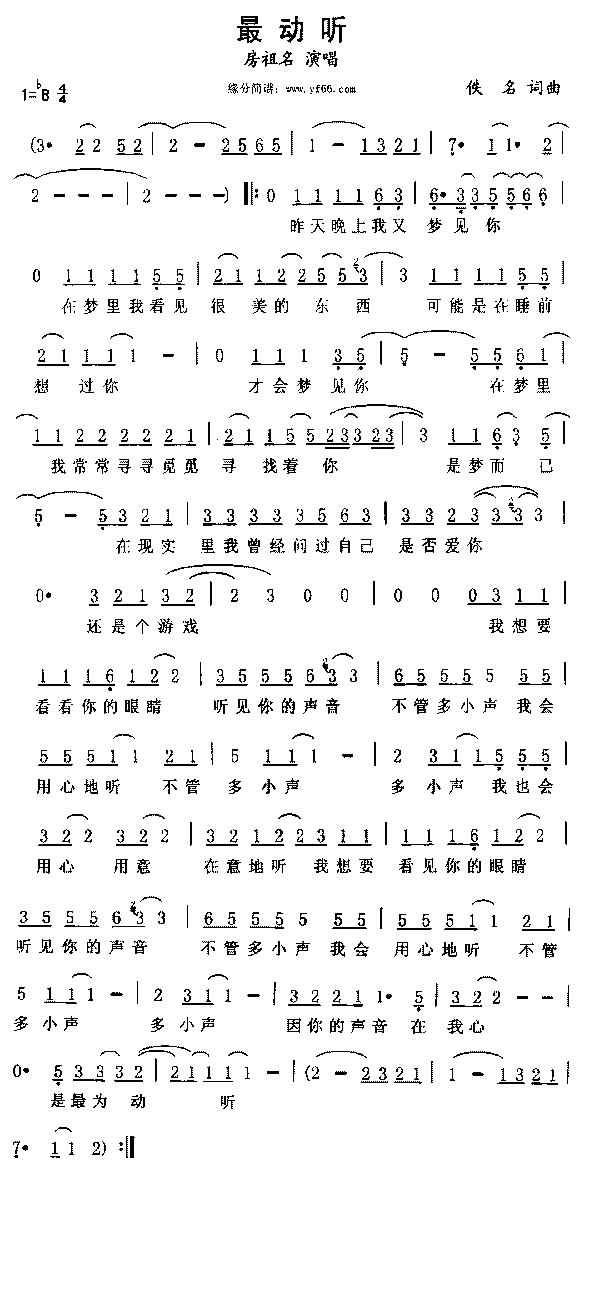 最动听
房祖名 演唱
1=♭B 4/4 缘分简谱：www.yf66.com 佚 名 词曲
(3· 2 2 5 2 | 2 - 2 5 6 5 | 1 - 1 3 2 1 | 7· 1 1· 2 |
2 - - - | 2 - - -) ‖: 0 1 1 1 1 6 3 | 6· 3 3 5 5 6 6 |
昨天晚上我又 梦见 你
0 1 1 1 1 5 5 | 2 1 1 2 2 5 5 3 | 3 1 1 1 1 5 5 |
在梦里我看见 很 美的 东 西 可能是在睡前
2 1 1 1 1 - | 0 1 1 1 3 5 | 5 - 5 5 6 1 |
想 过你 才会梦 见你 在梦里
1 1 2 2 2 2 2 1 | 2 1 1 5 5 2 3 3 2 3 | 3 1 1 6 3 5 |
我常常寻寻觅觅 寻 找着 你 是梦而已
5 - 5 3 2 1 | 3 3 3 3 3 5 6 3 | 3 3 2 3 3 3 3 |
在现实 里我曾经问过自己 是否爱你
0· 3 2 1 3 2 | 2 3 0 0 | 0 0 0 3 1 1 |
还是个游戏 我想要
1 1 1 6 1 2 2 | 3 5 5 5 5 6 3 3 3 | 6 5 5 5 5 5 5 5 |
看看你的眼睛 听见你的声音 不管多小声 我会
5 5 5 1 1 2 1 | 5 1 1 1 - | 2 3 1 1 5 5 5 |
用心地听 不管 多 小声 多 小声 我也会
3 2 2 3 2 2 | 3 2 1 2 2 3 1 1 | 1 1 1 6 1 2 2 |
用心 用意 在意地听 我想要 看见你的眼睛
3 5 5 5 5 6 3 3 3 | 6 5 5 5 5 5 5 5 | 5 5 5 1 1 2 1 |
听见你的声音 不管多小声 我会 用心地听 不管
5 1 1 1 - | 2 3 1 1 - | 3 2 2 1 1· 5 | 3 2 2 - |
多 小声 多 小声 因你的声音 在 我心
0· 5 3 3 3 2 | 2 1 1 1 1 1 - | (2 - 2 3 2 1 | 1 - 1 3 2 1 |
是最为 动 听
7· 1 1 2) :‖